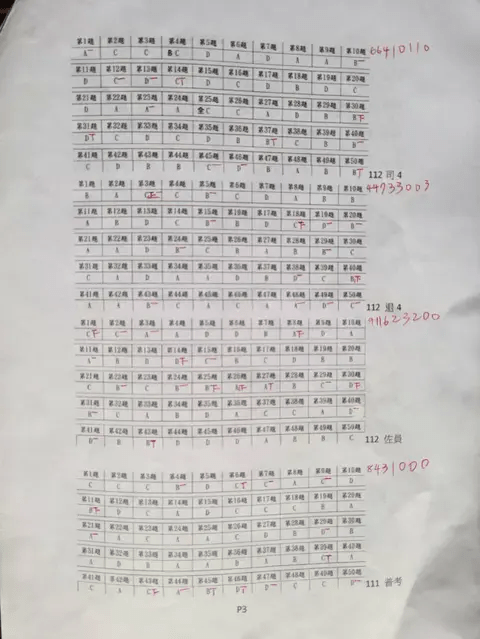 第1題 第2題 第3題 第4題 第5題 第6題 第7題 第8題 第9題 第10題
A C C C D A D A A B 66410110
第11題 第12題 第13題 第14題 第15題 第16題 第17題 第18題 第19題 第20題
D C D C C D B D C
第21題 第22題 第23題 第24題 第25題 第26題 第27題 第28題 第29題 第30題
D A A A C C A D B B
第31題 第32題 第33題 第34題 第35題 第36題 第37題 第38題 第39題 第40題
D C D C D B B C B B
第41題 第42題 第43題 第44題 第45題 第46題 第47題 第48題 第49題 第50題
C D B B C D B A D B 112 司4
第1題 第2題 第3題 第4題 第5題 第6題 第7題 第8題 第9題 第10題
B A C B C D A B B
第11題 第12題 第13題 第14題 第15題 第16題 第17題 第18題 第19題 第20題
A B D C B D A C D B
第21題 第22題 第23題 第24題 第25題 第26題 第27題 第28題 第29題 第30題
A C D B C B A B B C
第31題 第32題 第33題 第34題 第35題 第36題 第37題 第38題 第39題 第40題
C A D A A D B D C B
第41題 第42題 第43題 第44題 第45題 第46題 第47題 第48題 第49題 第50題
A A B C A C A A D C 112 退4
第1題 第2題 第3題 第4題 第5題 第6題 第7題 第8題 第9題 第10題
C C A A D D B A D A
第11題 第12題 第13題 第14題 第15題 第16題 第17題 第18題 第19題 第20題
A B D D C B C D B B
第21題 第22題 第23題 第24題 第25題 第26題 第27題 第28題 第29題 第30題
C B C B B A A B C D
第31題 第32題 第33題 第34題 第35題 第36題 第37題 第38題 第39題 第40題
B C A B D A C C A D
第41題 第42題 第43題 第44題 第45題 第46題 第47題 第48題 第49題 第50題
D B B D D D A B B C 112 佐員
第1題 第2題 第3題 第4題 第5題 第6題 第7題 第8題 第9題 第10題 8431000
C C C B D C C A C D
第11題 第12題 第13題 第14題 第15題 第16題 第17題 第18題 第19題 第20題
B D C A D C C C B A
第21題 第22題 第23題 第24題 第25題 第26題 第27題 第28題 第29題 第30題
A A C A A C D B D B
第31題 第32題 第33題 第34題 第35題 第36題 第37題 第38題 第39題 第40題
A D B A A D A B C A
第41題 第42題 第43題 第44題 第45題 第46題 第47題 第48題 第49題 第50題
C A C A B D D C C D 111 普考
P3